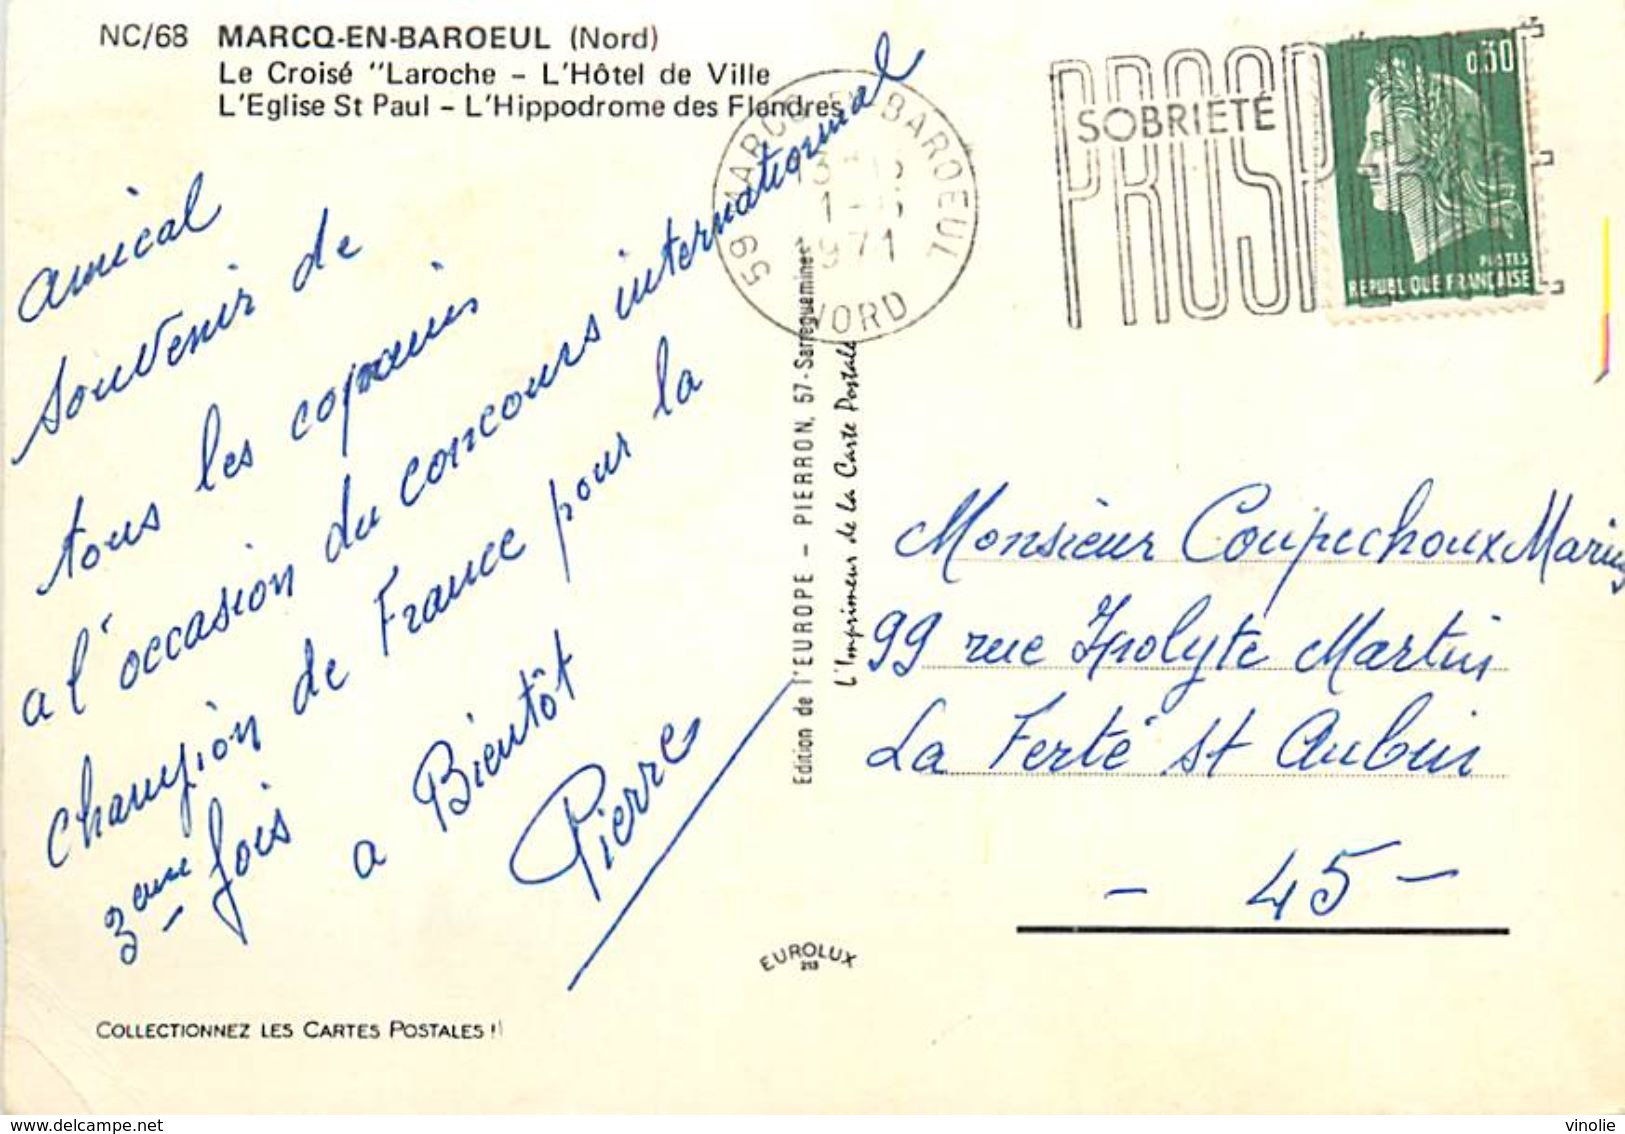 NC/68 MARCQ-EN-BAROEUL (Nord)
Le Croisé "Laroche - L'Hôtel de Ville
L'Eglise St Paul - L'Hippodrome des Flandres
amical
souvenir de
tous les copains
a l'occasion du concours international
champion de France pour la
3eme fois
a Bientôt
Pierre
COLLECTIONNEZ LES CARTES POSTALES !
MARCQ EN BAROEUL
1971
59 NORD
SOBRIÉTÉ
PROSPERITE
0,30
POSTES
REPUBLIQUE FRANÇAISE
Edition de l'EUROPE - PIERRON, 57-Sarreguemines
L'Imprimeur de la Carte Postale
Monsieur Coupechoux Marius
99 rue Ipolyte Martin
La Ferté St Aubin
- 45 -
EUROLUX
213
https://www.delcampe.net
vinolie